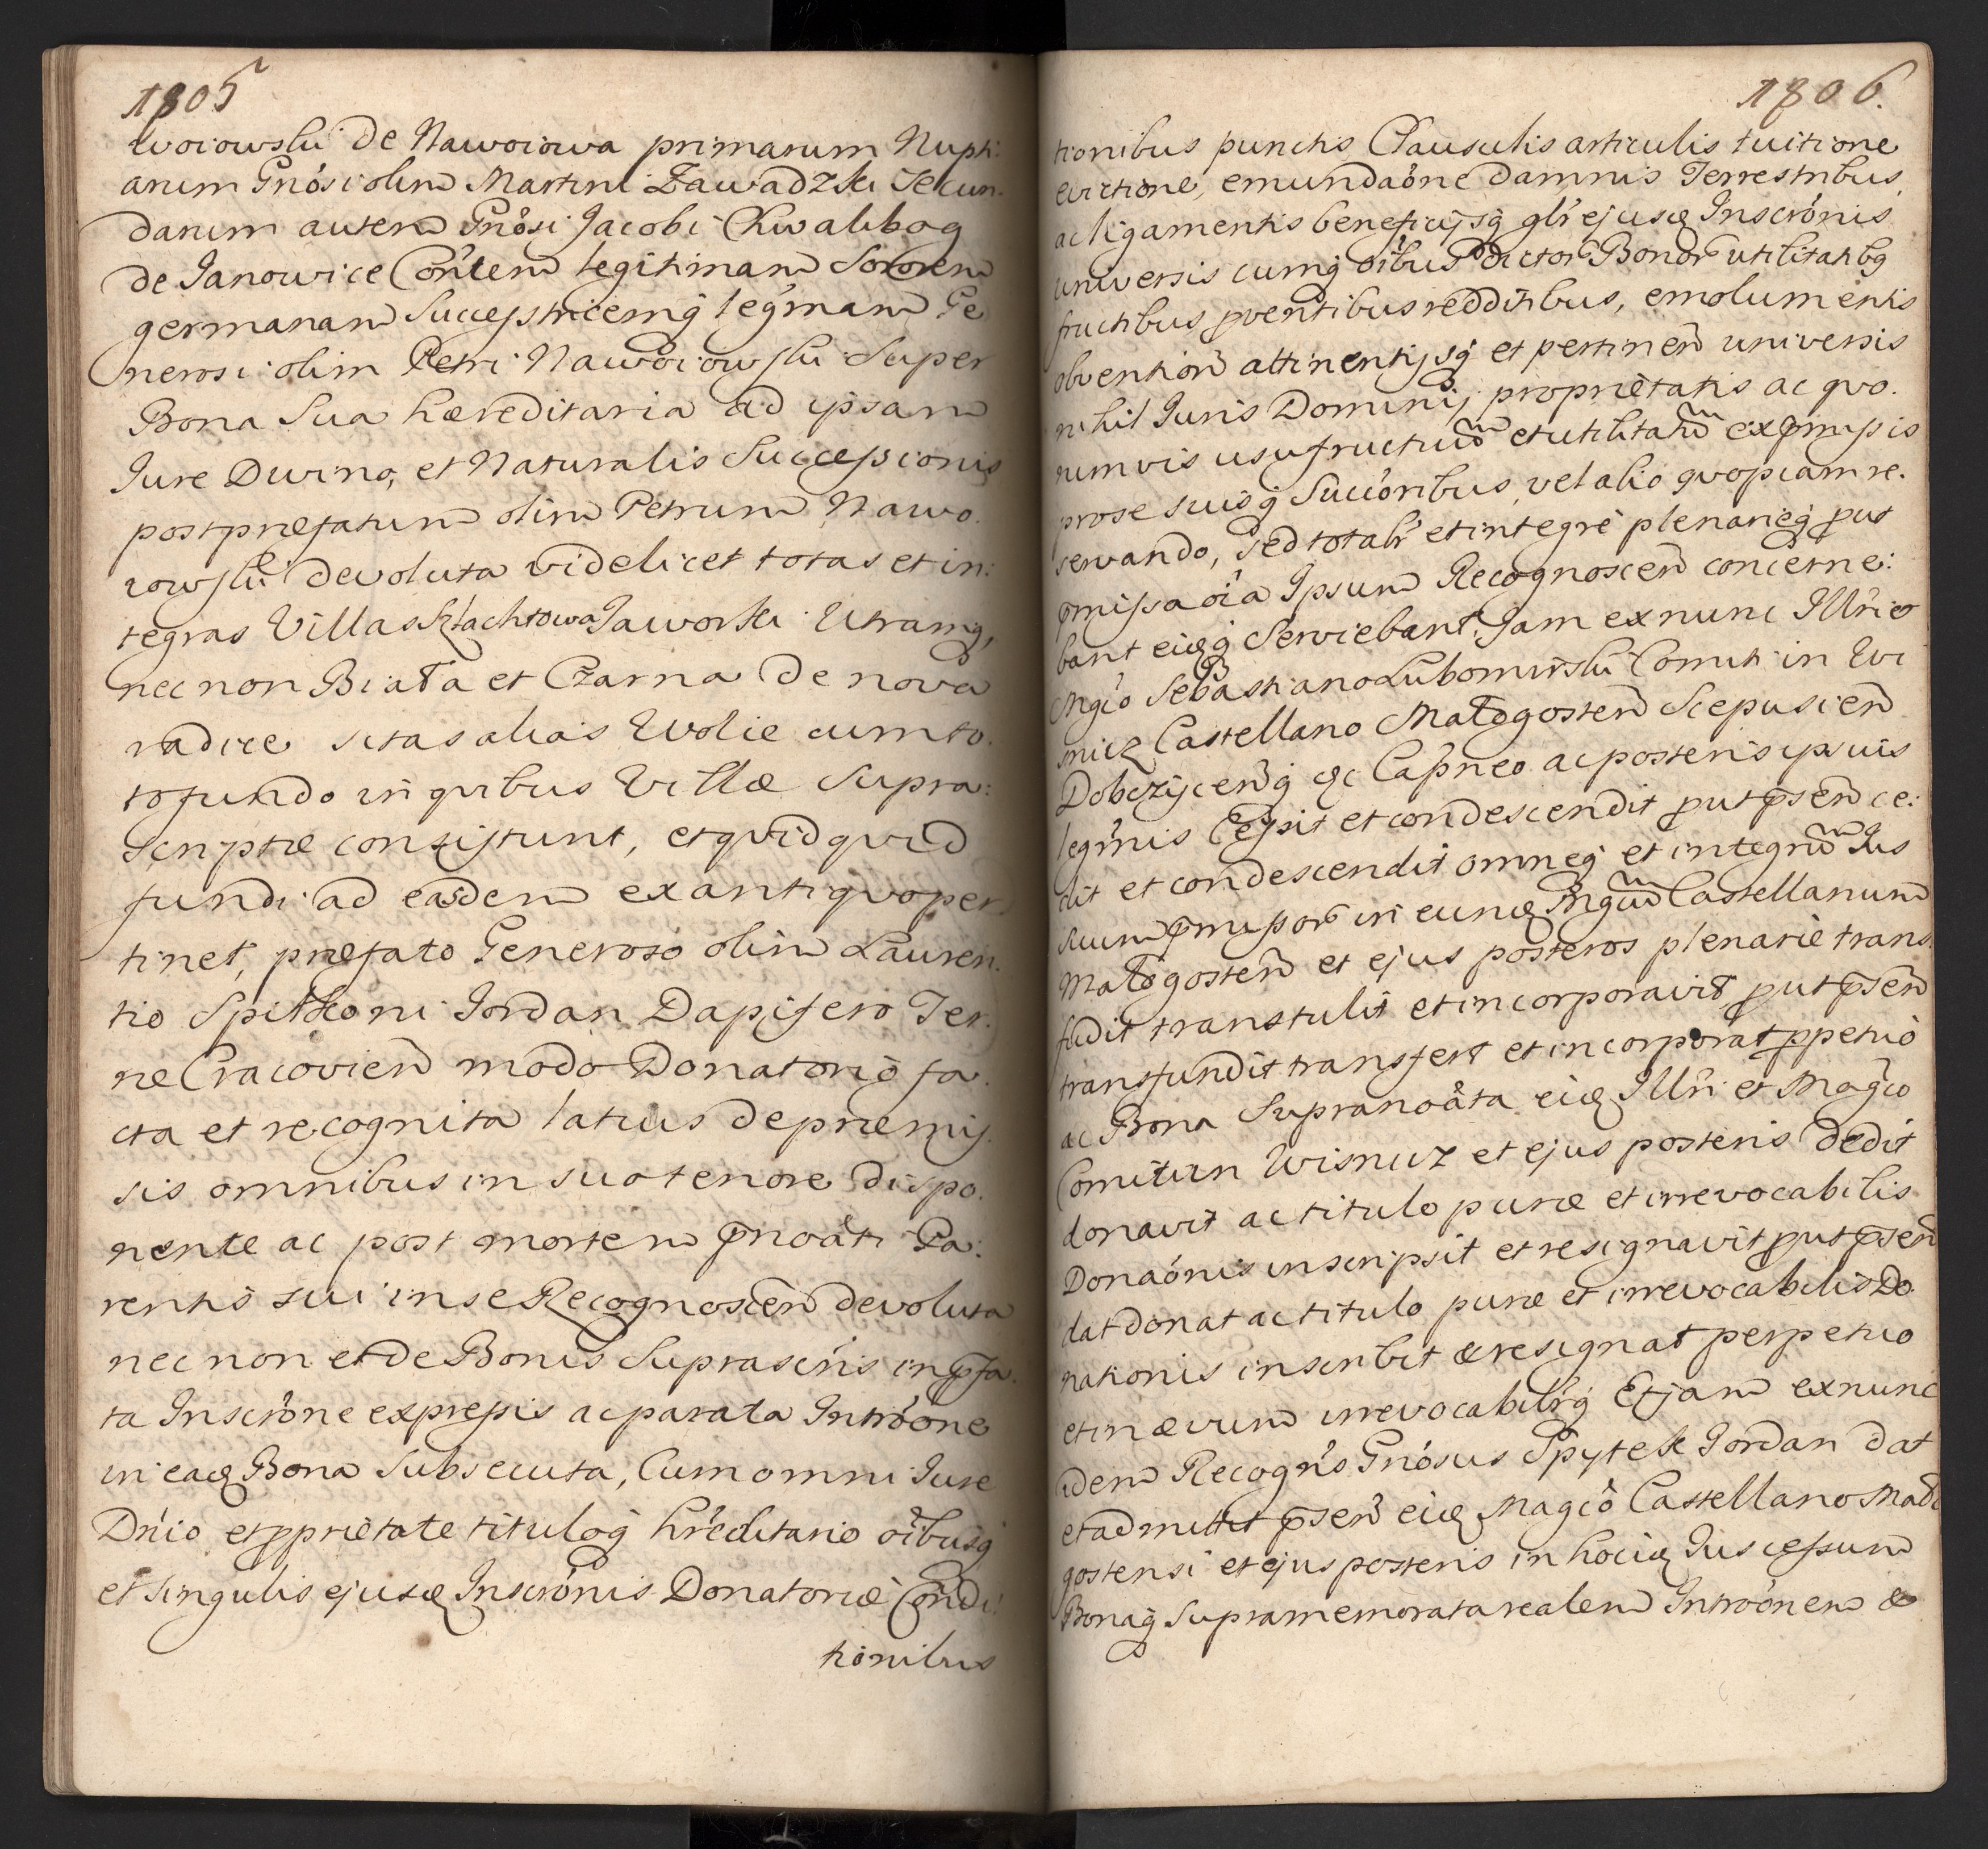 1805
woiowski de Nawoiowa primarum Nupti:
arum Gnósi olim Martini Zawadzki Secun.
darum autem Gnősi Jacobi Chwalibog
de Janowice Cőrtem legitimam Sororem
germanam Successricemq̃ legĩmam Ge
nerosi olim Petri Nawoiowski Super
Bona Sua hæreditaria ad ipsam
Jure Divino, et Naturalis Successionis
post præfatum olim Petrum Nawo.
iowski devoluta videlicet totas et in:
tegras Villas Szlachtowa Jaworki Utramq̃,
nec non Biała et Czarna de nova
radice sitas alias Wolie cum to.
to fundo in quibus Villæ Supra:
scriptæ consistunt, et quidquid
fundi ad easdem ex antiquo per
tinet, præfato Generoso olim Lauren.
tio Spitkoni Jordan Dapifero Ter.
ræ Cracovień modo Donatorio fa.
cta et recognita latius de præmis.
sis omnibus in suo tenore dispo.
nente ac post mortem p̃noãti Pa:
rentis sui in se Recognosceń devoluta
nec non et de Bonis Suprascris in p̃fa.
ta Inscrőne expressis ac parata Intrőone
in eaꝗ Bona Subsecuta, Cum omni Jure
Dnío et pprietate tituloq̃ hŕeditario oĩbusq̃
et singulis ejusꝗ Inscrőnis Donatoriæ Cońdi:
tionibus
1806.
tionibus punctis Clausulis articulis tuitione
evictione, emundaőne damnis Terrestribus,
ac ligamentis beneficijsq̃ glr̃ ejusꝗ Inscrőnis
universis cumq̃ oĩbus p̃dictor̃ Bonor̃ utilitatibq̃
fructibus pventibus redditibus, emolumentis
obvention̄ attinentijsq̃ et pertinen̄ universis
nihil Juris Dominij proprietatis ac quo.
rumvis usufructuũ et utilitatũ ex p̃missis
pro se suisq̃ Succőribus, vel alio quopiam re.
servando, sed totalr̃ et integrè plenarieq̃ put
p̃missa oĩa Ipsum Recognoscen̄ concerne:
bant eiꝗq̃ Serviebant, Jam ex nunc Illr̃i et
Mgĩo Sebastiano Lubomirski Comiti in Wi
snicz Castellano Małogosten̄ Scepusien̄
Dobczycen̄q̃ &c Capneo ac posteris ipsuis
legm̃is Cessit et condescendit put p̃sen̄ ce:
dit et condescendit omneq̃ et integrũ Jus
suum p̃missor̃ in eunꝗ Mgcũ Castellanum
Małogosten̄ et ejus posteros plenariè trans.
fudit transtulit et incorporavit put p̃sen̄
transfundit transfert et incorporat ppetuò
ac Bona Supranoãta eiꝗ Illr̃i et Magc̃o
Comiti in Wisnicz et ejus posteris dedit
donavit ac titulo puræ et irrevocabilis
Donaőnis inscripsit et resignavit put p̃sen̄
dat donat ac titulo puræ et irrevocabilis Do.
nationis inscribit & resignat perpetuo
et in ævum irrevocabilrq̃ Et jam ex nunc
idem Recogńs Gnősus Spytek Jordan dat
et admittit p̃sen̄ eiꝗ Magc̃o Castellano Mało
gostensi et ejus posteris in hociꝗ Jus cessum
Bonaq̃ Supramemorata realem Intrőonem &